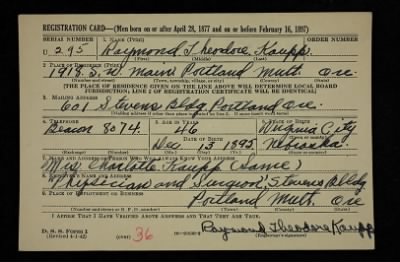 REGISTRATION CARD—(Men born on or after April 28, 1877 and on or before February 16, 1897)
SERIAL NUMBER 1. NAME (Print) ORDER NUMBER
U 295 Raymond Theodore Kaupp
(First) (Middle) (Last)
2. PLACE OF RESIDENCE (Print)
1918 S.W. Main Portland Mult. Ore
(Number and street) (Town, township, village, or city) (County) (State)
[THE PLACE OF RESIDENCE GIVEN ON THE LINE ABOVE WILL DETERMINE LOCAL BOARD
JURISDICTION; LINE 2 OF REGISTRATION CERTIFICATE WILL BE IDENTICAL]
3. MAILING ADDRESS
601 Stevens Bldg. Portland Ore.
[Mailing address if other than place indicated on line 2. If same insert word same]
4. TELEPHONE 5. AGE IN YEARS 6. PLACE OF BIRTH
Beacon 8074. 46
DATE OF BIRTH City
Dec 13 1895 Nebraska.
(Exchange) (Number) (Mo.) (Day) (Yr.) (State or country)
7. NAME AND ADDRESS OF PERSON WHO WILL ALWAYS KNOW YOUR ADDRESS
Mrs Charlotte Kaupp (Same)
8. EMPLOYER'S NAME AND ADDRESS
Physician and Surgeon, Stevens Bldg
9. PLACE OF EMPLOYMENT OR BUSINESS
Portland Mult. Ore
(Number and street or R. F. D. number) (Town) (County) (State)
I AFFIRM THAT I HAVE VERIFIED ABOVE ANSWERS AND THAT THEY ARE TRUE.
D. S. S. Form 1
(Revised 4-1-42) (over) 36
Raymond Theodore Kaupp